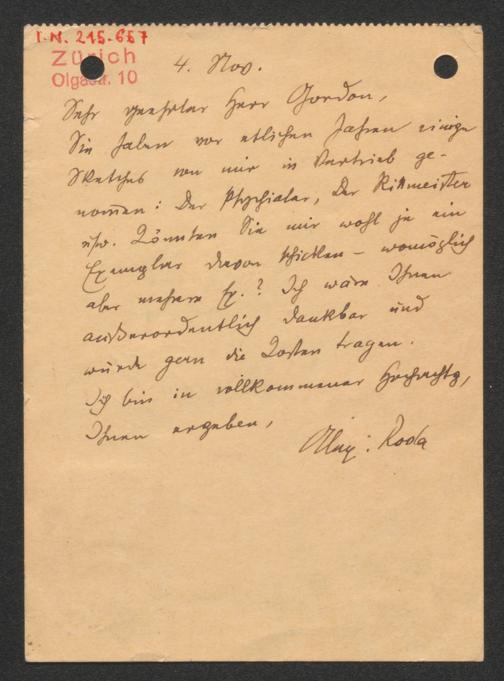 I.N. 215.667
Zürich
Olgastr. 10
4. Nov.
Sehr geehrter Herr Gordon,
Sie haben vor etlichen Jahren einige
Sketches von mir in Vertrieb ge-
nom̅en: Der Psychiater, Der Rittmeister
usw. Könnten Sie mir wohl je ein
Exemplar davon schicken – womöglich
aber mehrere Ex.? Ich wäre Ihnen
außerordentlich dankbar und
würde gern die Kosten tragen.
Ich bin in vollkommener Hochachtg,
Ihnen ergeben,
Roda